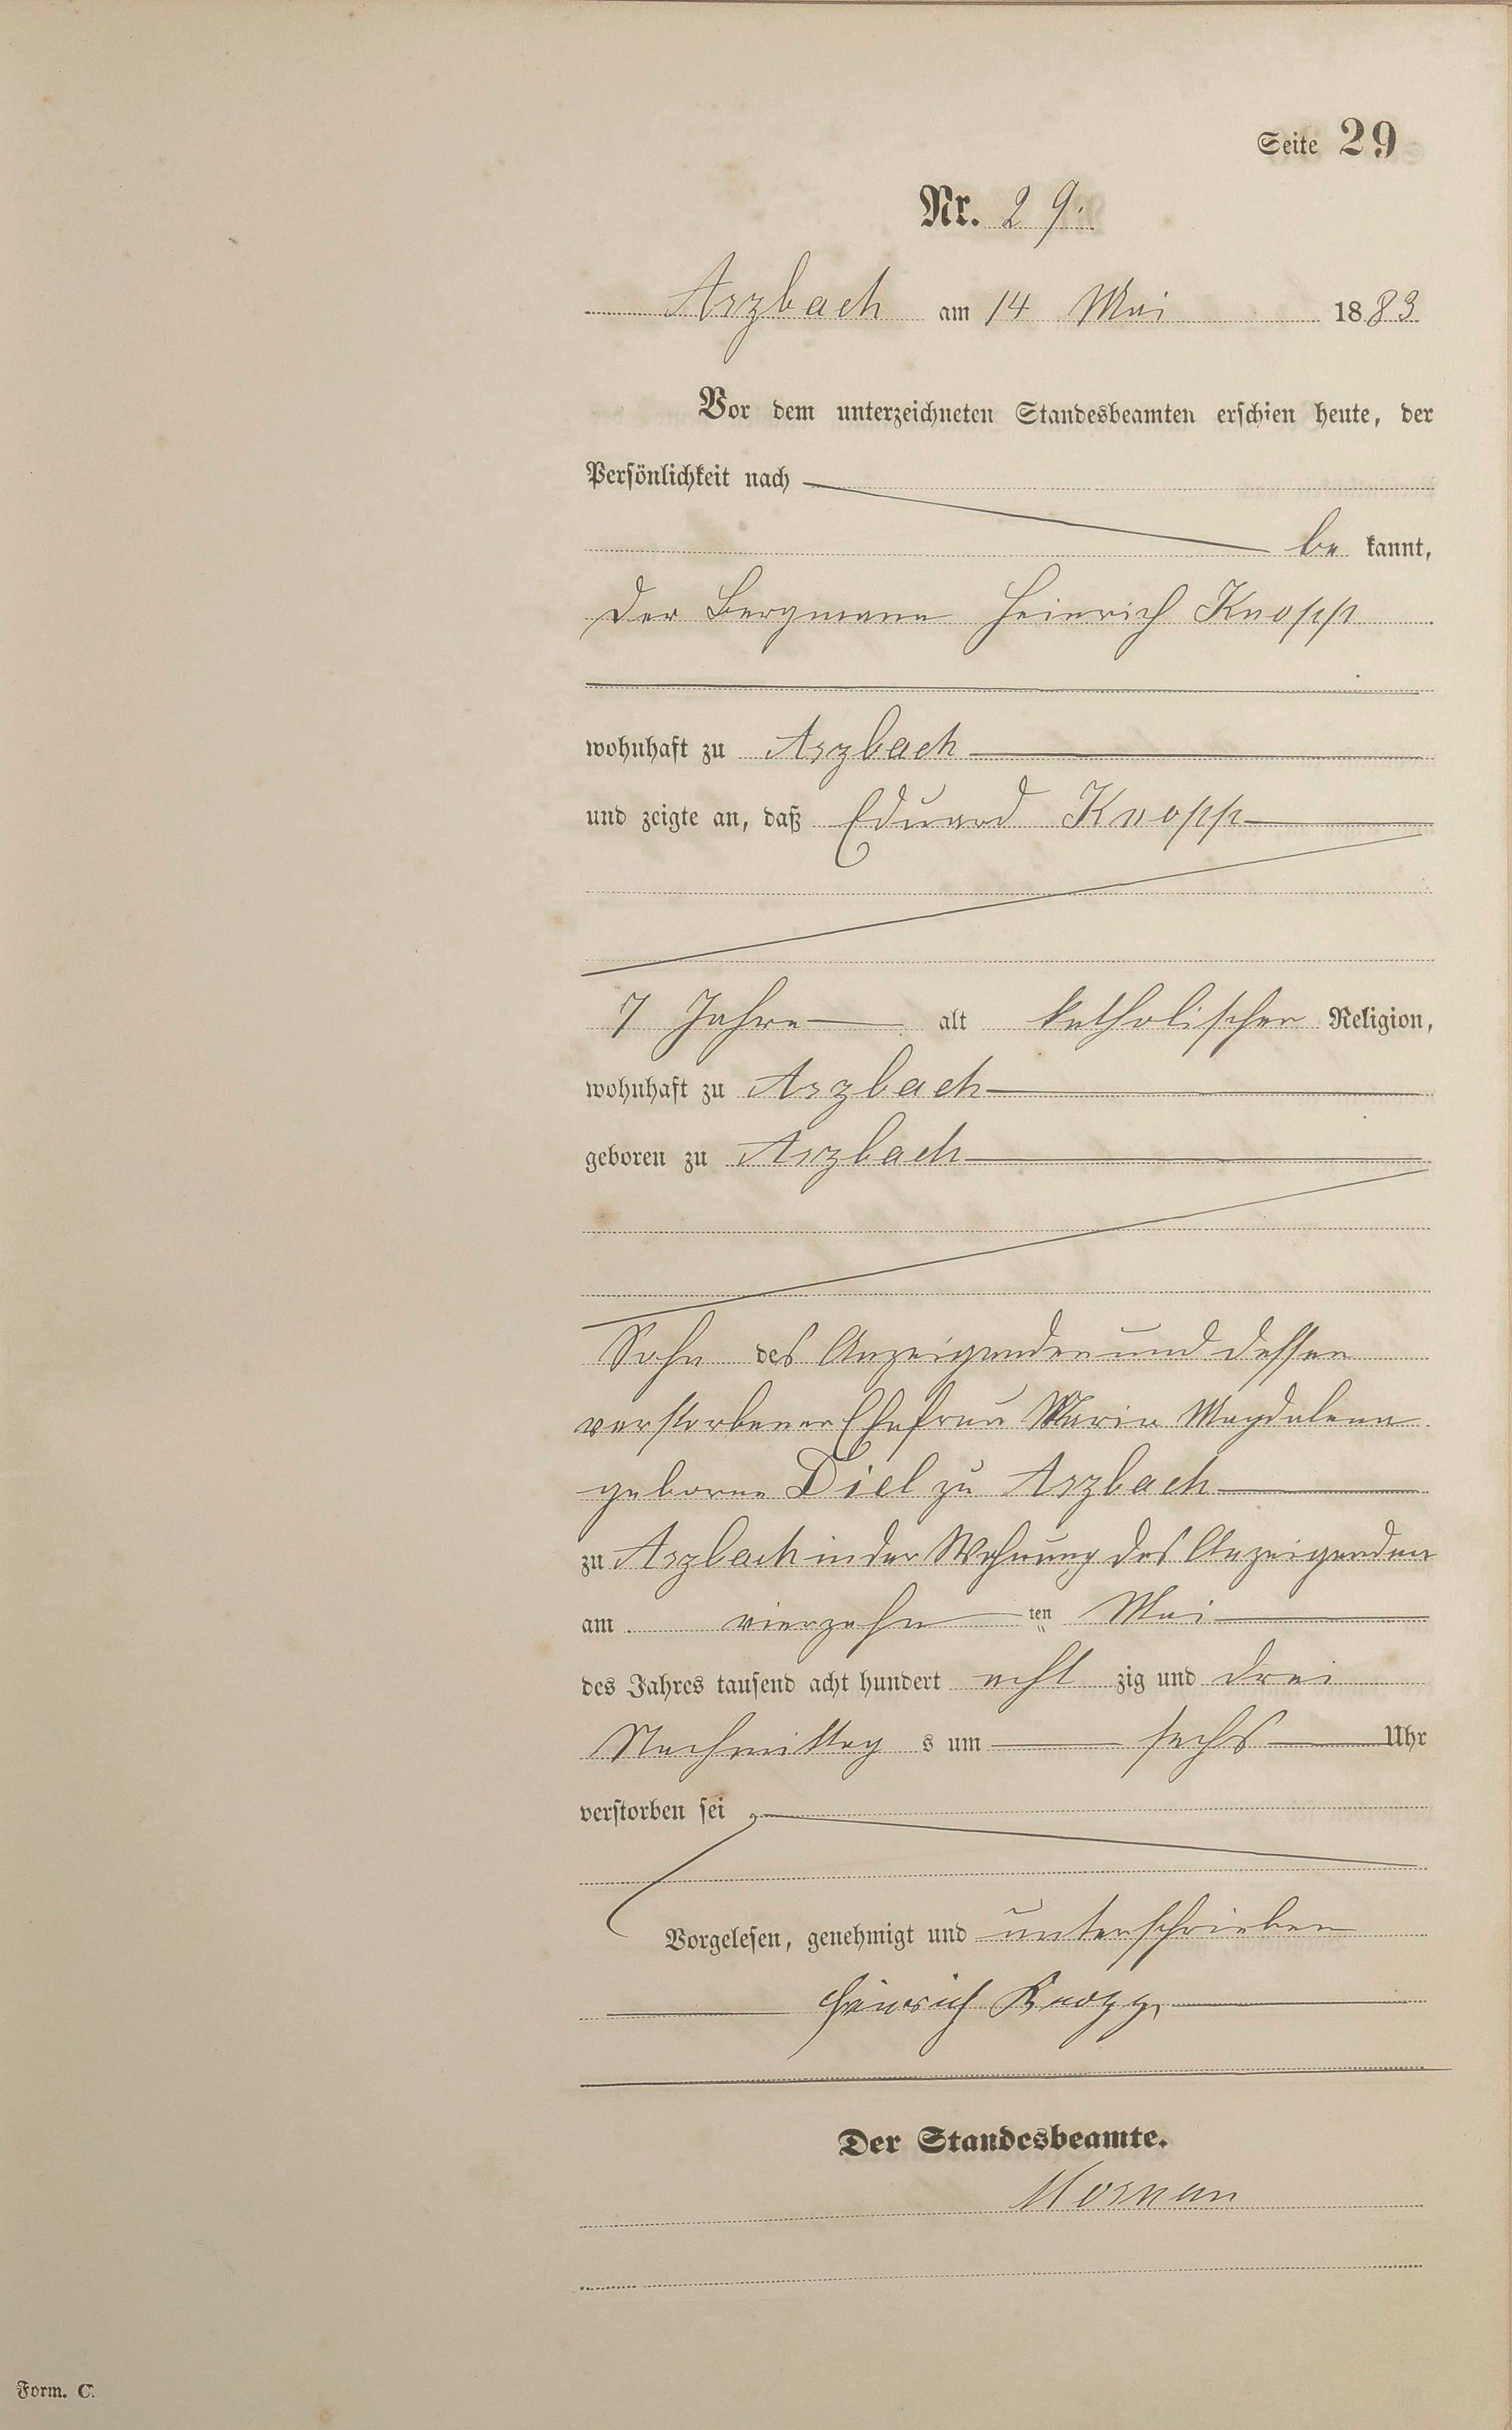 Seite 29
Nr. 29.
Arzbach am 14 Mai 1883
Vor dem unterzeichneten Standesbeamten erschien heute, der
Persönlichkeit nach
be kannt,
der Bergmann Heinrich Knopp
wohnhaft zu Arzbach
und zeigte an, daß Eduard Knopp
7 Jahre alt katholischer Religion,
wohnhaft zu Arzbach
geboren zu Arzbach
Sohn des Anzeigenden und dessen
verstorbenen Ehefrau Maria Magdalena
geborne Diel zu Arzbach
zu Arzbach in der Wohnung des Anzeigenden
am vierzehn ten Mai
des Jahres tausend acht hundert acht zig und drei
Nachmittag s um sechs Uhr
verstorben sei
Vorgelesen, genehmigt und unterschrieben
Heinrich Knopp
Der Standesbeamte.
Form. C.